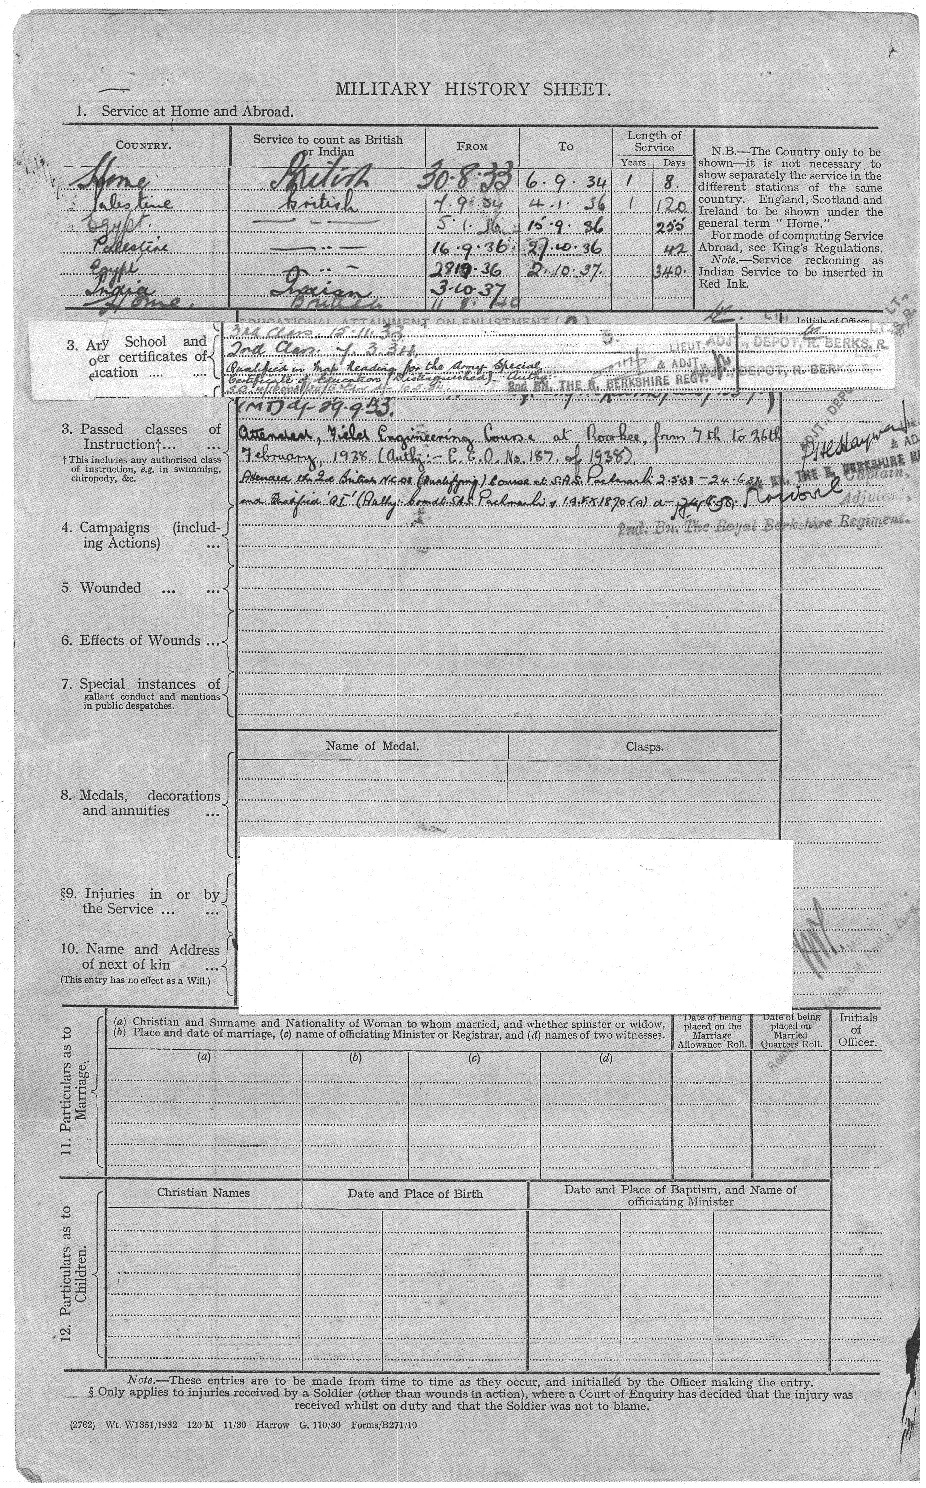 MILITARY HISTORY SHEET.
1. Service at Home and Abroad.
COUNTRY. Service to count as British or Indian FROM TO Length of Service Years Days
Home British 30-8-33 6.9.34 1 8
Palestine British 7.9.34 4.1.36 1 120
Egypt. 5.1.36 15-9.36 255
Palestine 16.9.36 27.10.36 42
Egypt 28 10.36 2.10.37. 340
India Indian 3-10-37
Home. British
N.B.—The Country only to be
shown—it is not necessary to
show separately the service in the
different stations of the same
country. England, Scotland and
Ireland to be shown under the
general term "Home."
For mode of computing Service
Abroad, see King's Regulations.
Note.—Service reckoning as
Indian Service to be inserted in
Red Ink.
EDUCATIONAL ATTAINMENT ON ENLISTMENT
Initials of Officer
3. Ary School and
oer certificates of
eication .... ....
3rd Class. 15.11.33
2nd Class. 7.3.34
Qualified in Map Reading for the Army Special
Certificate of Education (Distinguished)
LIEUT. ADJT., DEPOT, R. BERKS. R.
& ADJT
2nd BN. THE R. BERKSHIRE REGT.
DEPOT, R. BERKS
3. Passed classes of
Instruction†... ...
† This includes any authorised class
of instruction, e.g. in swimming,
chiropody, &c.
29.9.33.
Attended, Field Engineering Course at Roorkee, from 7th to 26th
February, 1938 (Auth:- E.E.O. No. 187. of 1938)
THE R. BERKSHIRE
Captain,
Adjutant,
2nd. Bn. The Royal Berkshire Regiment.
4. Campaigns (includ-
ing Actions) ...
5. Wounded ... ...
6. Effects of Wounds ...
7. Special instances of
gallant conduct and mentions
in public despatches.
Name of Medal. Clasps.
8. Medals, decorations
and annuities ...
§9. Injuries in or by
the Service ... ...
10. Name and Address
of next of kin ...
(This entry has no effect as a Will.)
11. Particulars as to Marriage.
(a) Christian and Surname and Nationality of Woman to whom married, and whether spinster or widow,
(b) Place and date of marriage, (c) name of officiating Minister or Registrar, and (d) names of two witnesses.
Date of being placed on the Marriage Allowance Roll.
Date of being placed on Married Quarters Roll.
Initials of Officer.
(a) (b) (c) (d)
12. Particulars as to Children.
Christian Names Date and Place of Birth Date and Place of Baptism, and Name of officiating Minister
Note.—These entries are to be made from time to time as they occur, and initialled by the Officer making the entry.
§ Only applies to injuries received by a Soldier (other than wounds in action), where a Court of Enquiry has decided that the injury was
received whilst on duty and that the Soldier was not to blame.
(2762) Wt. W1351/1932 120M 11/30 Harrow G. 110/30 Forms/B271/10